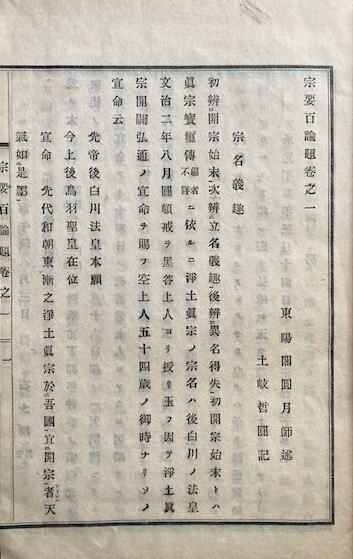 宗要百論題卷之一
東陽閣圓月師述
土岐哲圓記
宗名義趣
初辨開宗始末次辨立名義趣後辨異名得失初開宗始末トハ
眞宗寶璽傳編者不詳ニ依ルニ淨土眞宗ノ宗名ハ後白川ノ法皇
文治二年八月圓頓戒ヲ黑谷上人ヨリ授リ玉フ因テ淨土眞
宗開闢弘通ノ宣命ヲ賜フ空上人五十四歲ノ御時ナリソノ
宣命云
先帝後白川法皇本願
今上後鳥羽聖皇在位
宣命先代和朝東漸之淨土眞宗於吾國宜開宗者天
氣如是
宗要百論題卷之一
一